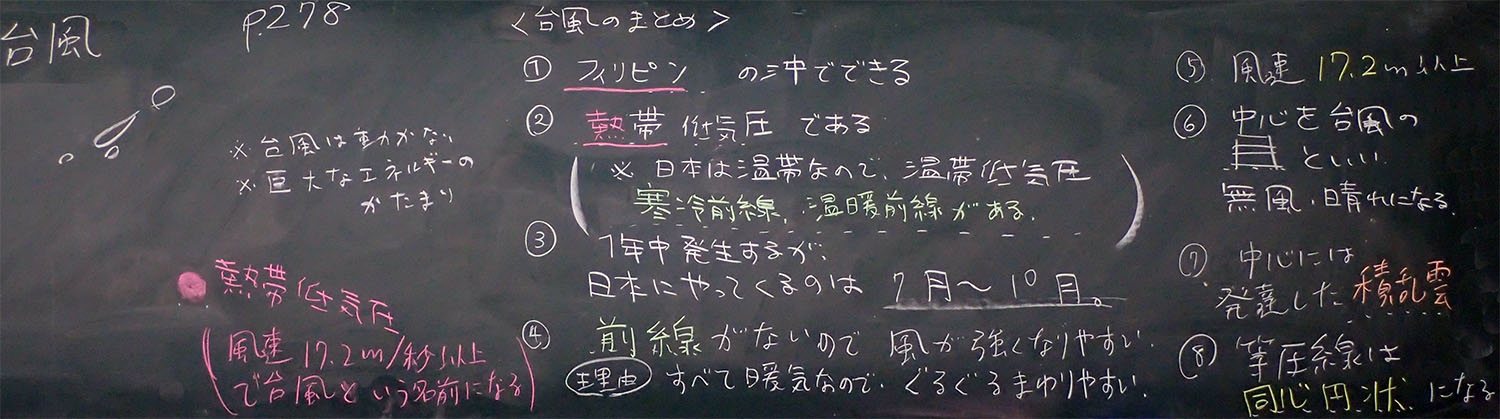 台風
p.278
※台風は動かない
※巨大なエネルギーの
かたまり
熱帯低気圧
(風速17.2m/秒以上
で台風という名前になる)
<台風のまとめ>
① フィリピン の沖でできる
② 熱帯低気圧である
(※日本は温帯なので、温帯低気圧
寒冷前線、温暖前線がある.)
③ 1年中発生するが、
日本にやってくるのは 7月〜10月。
④ 前線がないので 風が強くなりやすい.
理由 すべて暖気なので、ぐるぐるまわりやすい.
⑤ 風速 17.2m以上
⑥ 中心を台風の
目といい.
無風、晴れになる.
⑦ 中心には
発達した積乱雲
⑧ 等圧線は
同心円状になる